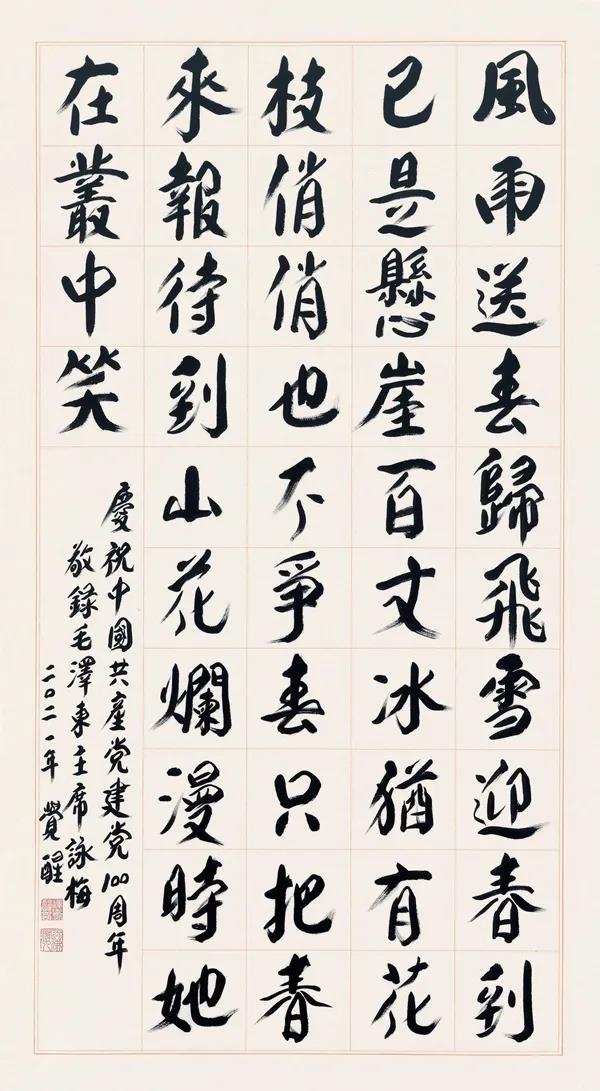 風雨送春歸飛雪迎春到
已是懸崖百丈冰猶有花
枝俏俏也不爭春只把春
來報待到山花爛漫時她
在叢中笑
慶祝中國共產党建党100周年
敬錄毛澤東主席詠梅
二〇二一年 覺醒